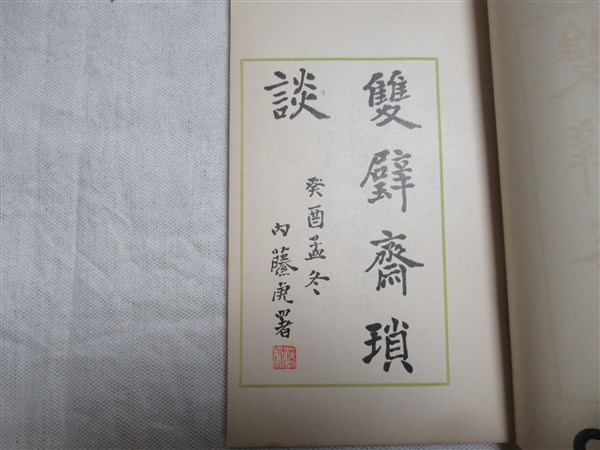 雙臂齋瑣
談
癸酉孟冬
内藤虎署